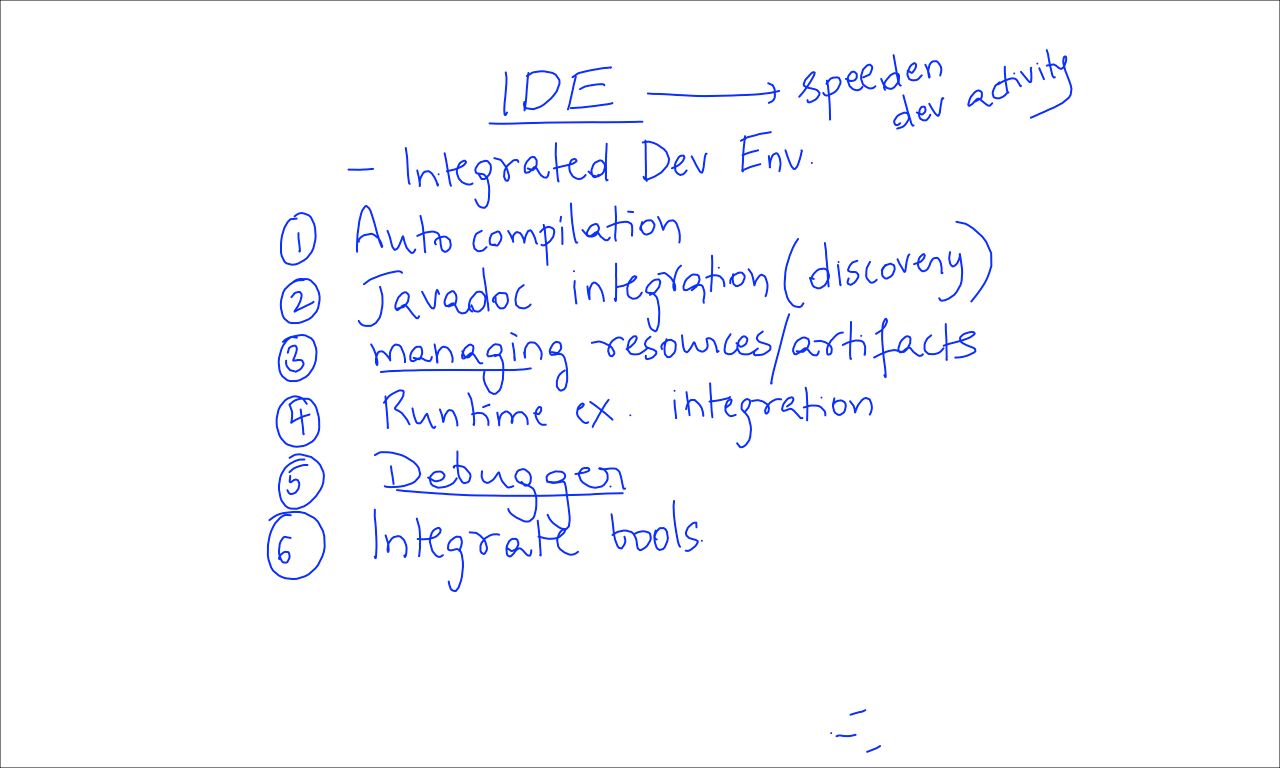 IDE → speeden
dev activity
- Integrated Dev Env.
1 Auto compilation
2 Javadoc integration (discovery)
3 managing resources/artifacts
4 Runtime ex. integration
5 Debugger
6 Integrate tools.